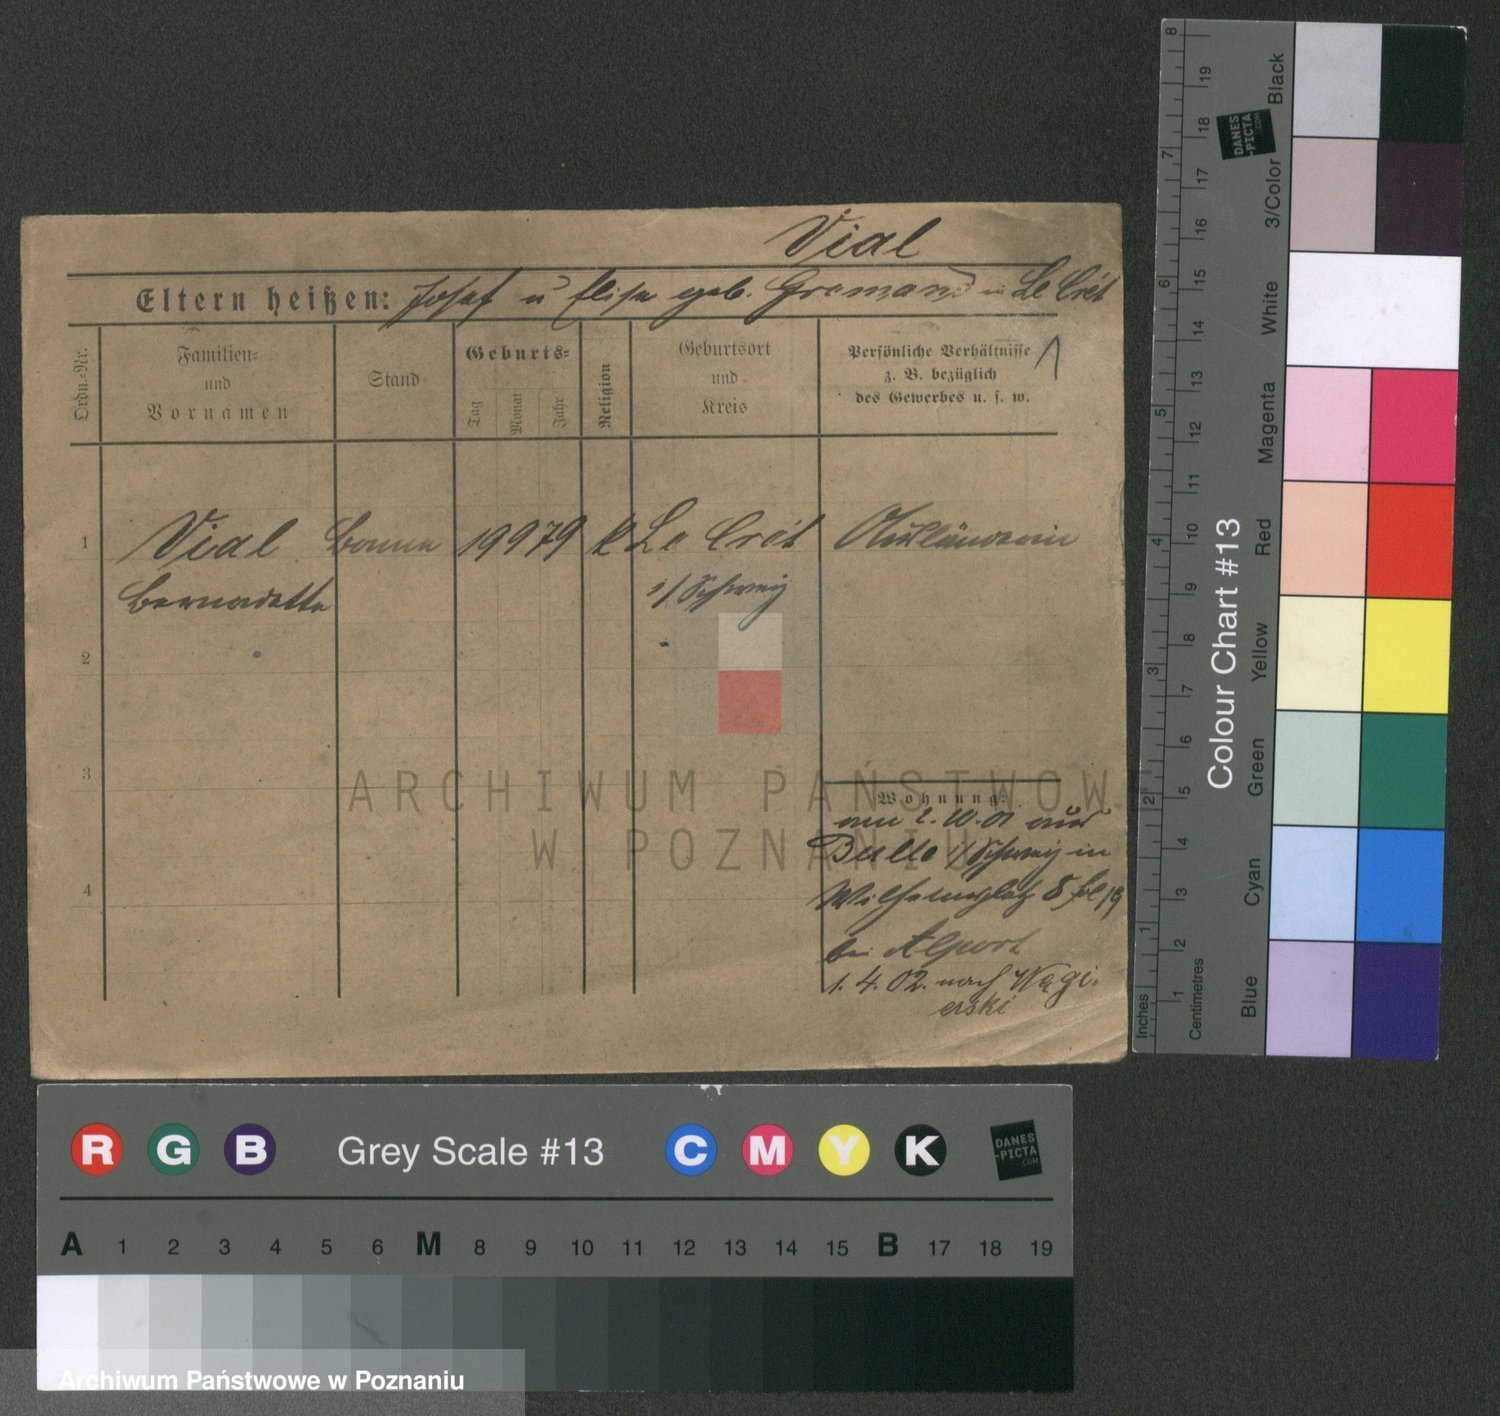 Vial
Eltern heißen: Josef u Elise geb. Gremand in Le Crêt
Ordn.-Nr.
Familien-
und
Vornamen
Stand
Geburts-
Tag
Monat
Jahr
Religion
Geburtsort
und
Kreis
Persönliche Verhältnisse
z. B. bezüglich
des Gewerbes u. s. w.
1
1 Vial Bonne 19 9 79 k Le Crêt Ausländerin
Bernadette i/Schweiz
2
3
4
Wohnung:
am 2.10.01 aus
Bulle i/Schweiz in
Wilhelmsplatz 8
bei Alport
1. 4. 02. nach Wegi-
erski
ARCHIWUM PAŃSTWOW
W POZNANIU
Inches 1 2 3 4 5 6 7 8
Centimetres 1 2 3 4 5 6 7 8 9 10 11 12 13 14 15 16 17 18 19
DANES
-PICTA
.COM
Colour Chart #13
Blue Cyan Green Yellow Red Magenta White 3/Color Black
R G B Grey Scale #13 C M Y K
DANES
-PICTA
.COM
A 1 2 3 4 5 6 M 8 9 10 11 12 13 14 15 B 17 18 19
Archiwum Państwowe w Poznaniu